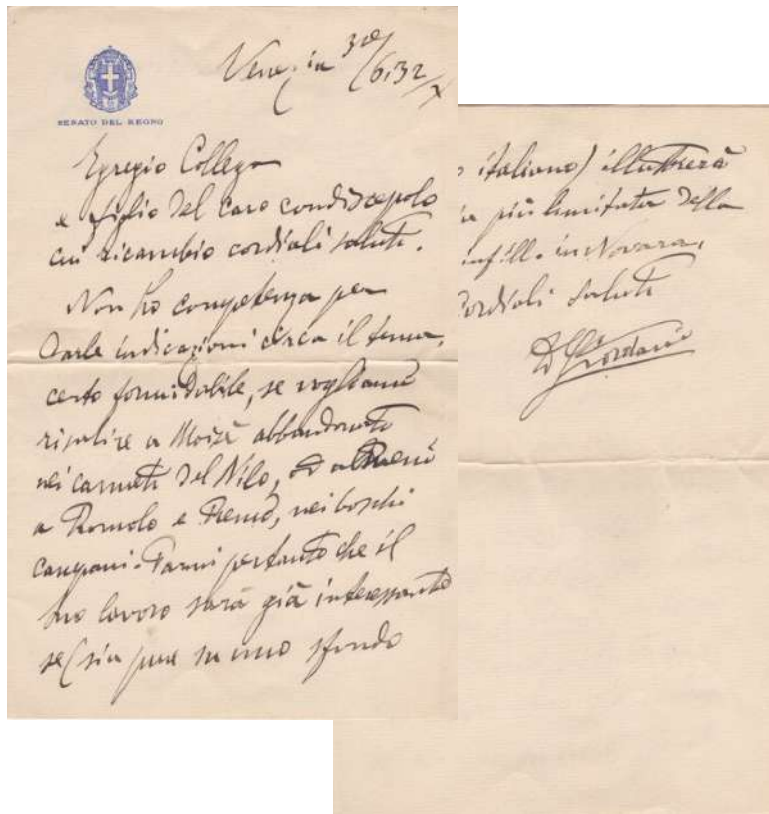 SENATO DEL REGNO
Venezia 30/6.32/X
Egregio Collega
e figlio del caro condiscepolo
cui ricambio cordiali saluti.
Non ho competenza per
darle indicazioni circa il tema,
certo formidabile, se vogliamo
risalire a Moisè abbandonato
nei canneti del Nilo, od almeno
a Romolo e Remo, nei boschi
campani. Parmi pertanto che il
suo lavoro sarà già interessante
se (sia pure su uno sfondo
italiano) illustrerà
più limitata della
in Novara.
Cordiali saluti
D Giordano